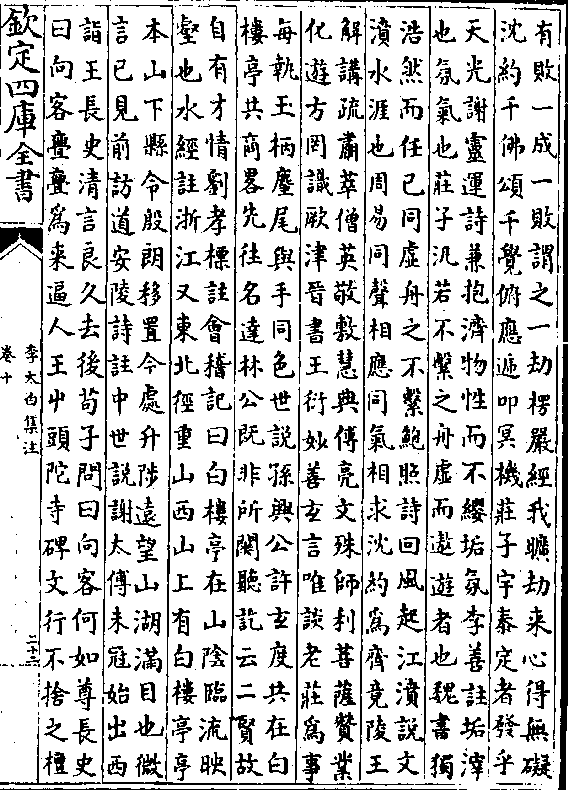 有敗一成一敗謂之一劫楞嚴經我曠劫来心得無礙
沈約千佛頌千覺俯應遞叩冥機莊子宇泰定者發乎
天光謝靈運詩兼抱濟物性而不纓垢氛李善註垢滓
也氛氣也莊子汎若不繫之舟虛而遨遊者也魏書獨
浩然而任已同虛舟之不繫鮑照詩回風起江濆説文
濆水涯也周易同聲相應同氣相求沈約為齊竟陵王
解講疏肅萃僧英敬敷慧典傅亮文殊師利菩薩贊業
化遊方罔識厥津晉書王衍妙善𤣥言唯談老莊為事
每執玉柄麈尾與手同色世説孫興公許𤣥度共在白
樓亭共商畧先往名達林公既非所關聽訖云二賢故
自有才情劉孝標註會稽記曰白樓亭在山陰臨流映
壑也水經註浙江又東北經重山西山上有白樓亭亭
本山下縣令殷朗移置今處升陟遠望山湖滿目也微
言已見前訪道安陵詩註中世説謝太傅未冠始出西
詣王長史清言良久去後荀子問曰向客何如尊長史
曰向客亹亹為来逼人王屮頭陀寺碑文行不捨之檀
欽定四庫全書
李太白集注
卷十
二十六